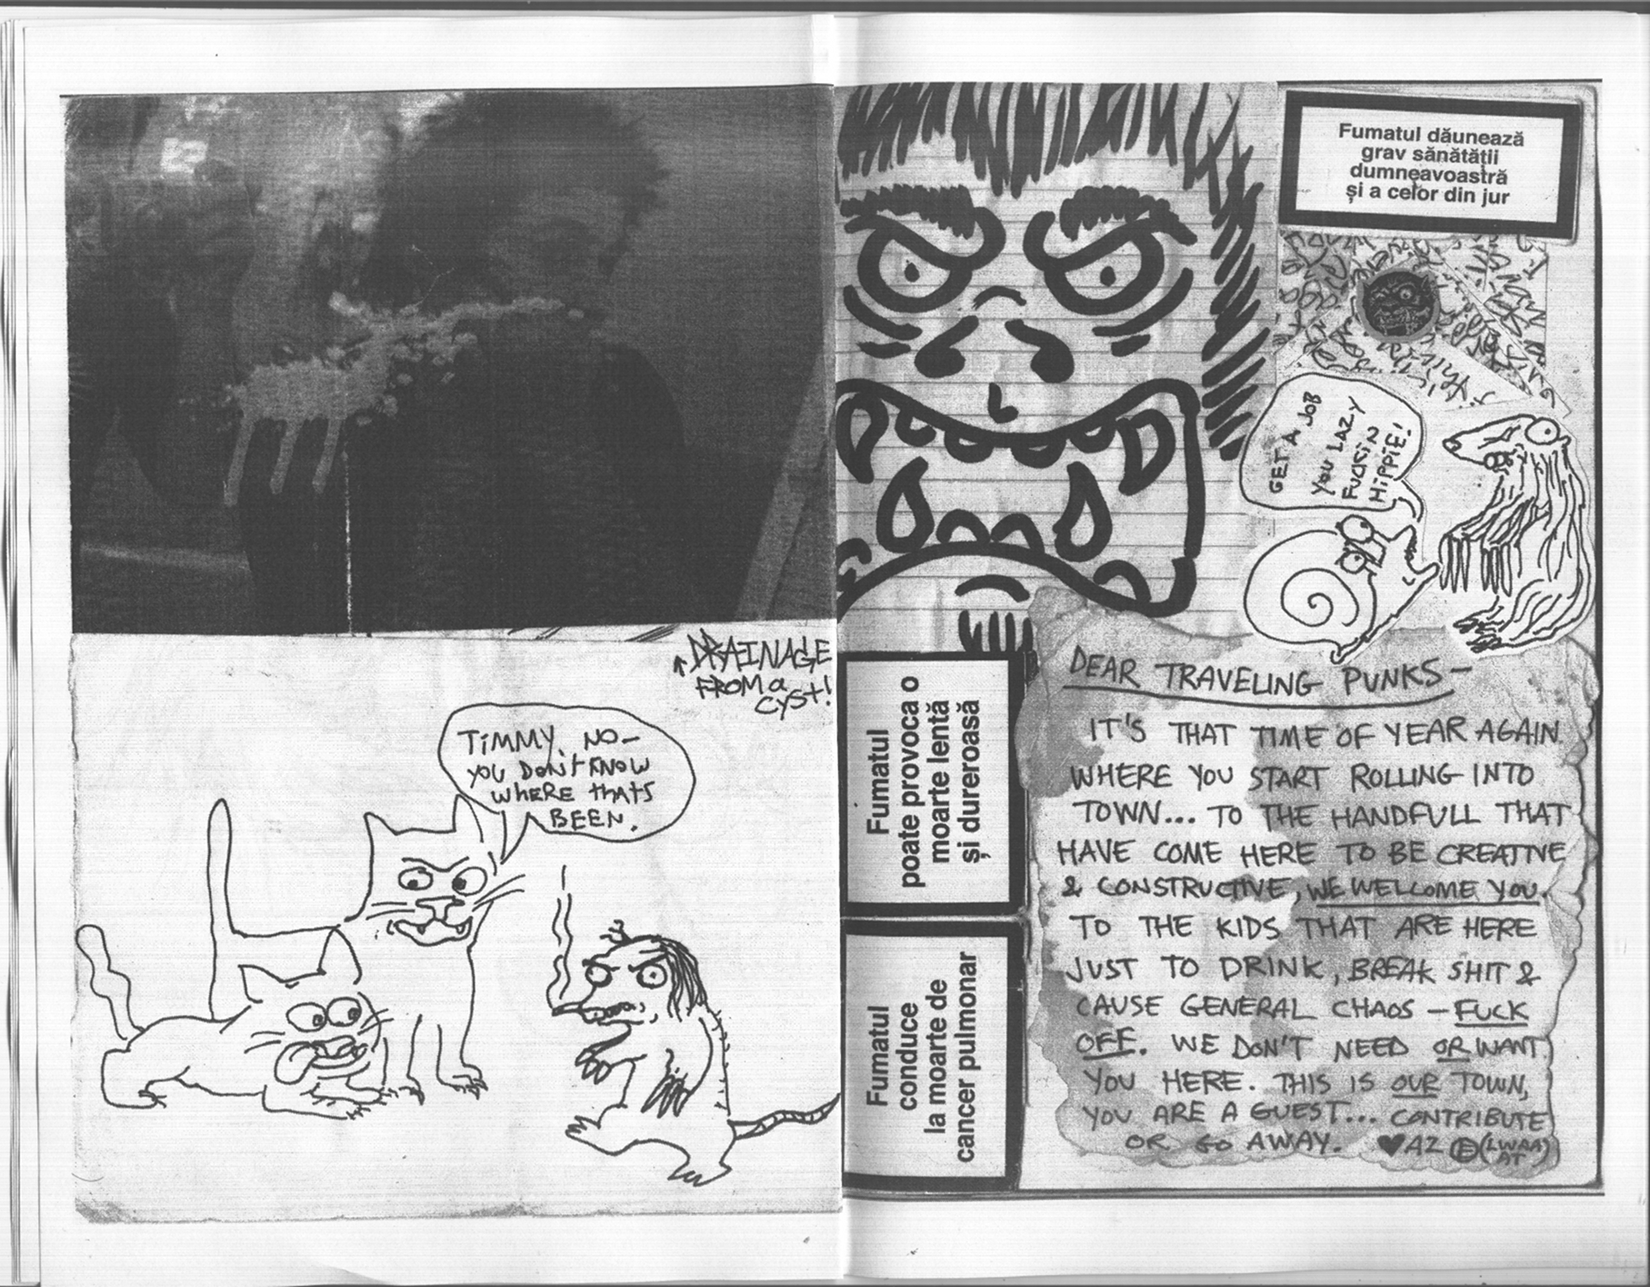 ↑ DRAINAGE
FROM a
CYST!
TIMMY, NO—
YOU DON'T KNOW
WHERE THATS
BEEN.
Fumatul dăunează
grav sănătății
dumneavoastră
și a celor din jur
GET A JOB
YOU LAZY
FUCKIN
HIPPIE!
Fumatul
poate provoca o
moarte lentă
și dureroasă
Fumatul
conduce
la moarte de
cancer pulmonar
DEAR TRAVELING PUNKS—
IT'S THAT TIME OF YEAR AGAIN
WHERE YOU START ROLLING INTO
TOWN... TO THE HANDFULL THAT
HAVE COME HERE TO BE CREATIVE
& CONSTRUCTIVE, WE WELCOME YOU.
TO THE KIDS THAT ARE HERE
JUST TO DRINK, BREAK SHIT &
CAUSE GENERAL CHAOS — FUCK
OFF. WE DON'T NEED OR WANT
YOU HERE. THIS IS OUR TOWN,
YOU ARE A GUEST... CONTRIBUTE
OR GO AWAY. ♥AZ